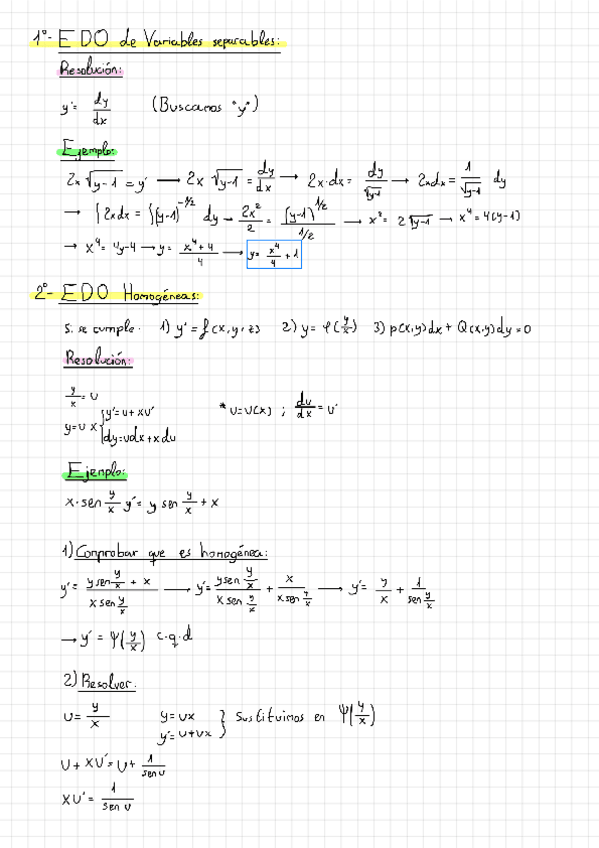 1º- EDO de Variables separables:
Resolución:
y' = dy/dx (Buscamos "y")
Ejemplo:
2x √(y-1) = y' → 2x √(y-1) = dy/dx → 2x·dx = dy/√(y-1) → 2xdx = 1/√(y-1) dy
→ ∫2xdx = ∫(y-1)^(-1/2) dy - 2x²/2 = (y-1)^(1/2)/(1/2) → x² = 2√(y-1) → x⁴ = 4(y-1)
→ x⁴ = 4y-4 → y = (x⁴+4)/4 → y = x⁴/4 + 1
2º- EDO Homogéneas:
Si se cumple: 1) y' = f(x,y,z) 2) y = φ(y/x) 3) p(x,y)dx + Q(x,y)dy = 0
Resolución:
y/x = u
y = u x { y' = u + xu' * u = u(x) ; du/dx = u'
dy = udx + x du
Ejemplo:
x·sen y/x y' = y sen y/x + x
1) Comprobar que es homogénea:
y' = (y sen y/x + x)/(x sen y/x) → y' = (y sen y/x)/(x sen y/x) + x/(x sen y/x) → y' = y/x + 1/(sen y/x)
→ y' = Ψ(y/x) c.q.d
2) Resolver:
u = y/x y = ux } Sustituimos en Ψ(y/x)
y' = u+ux
u + xu' = u + 1/(sen u)
xu' = 1/(sen u)